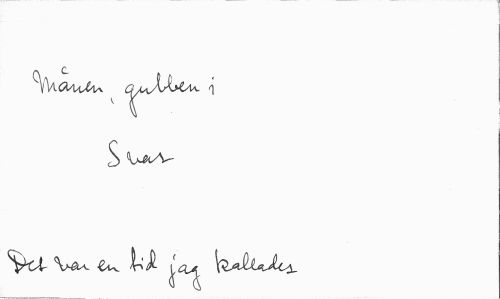 Månen, gubben i
Svar
Det var en tid jag kallades